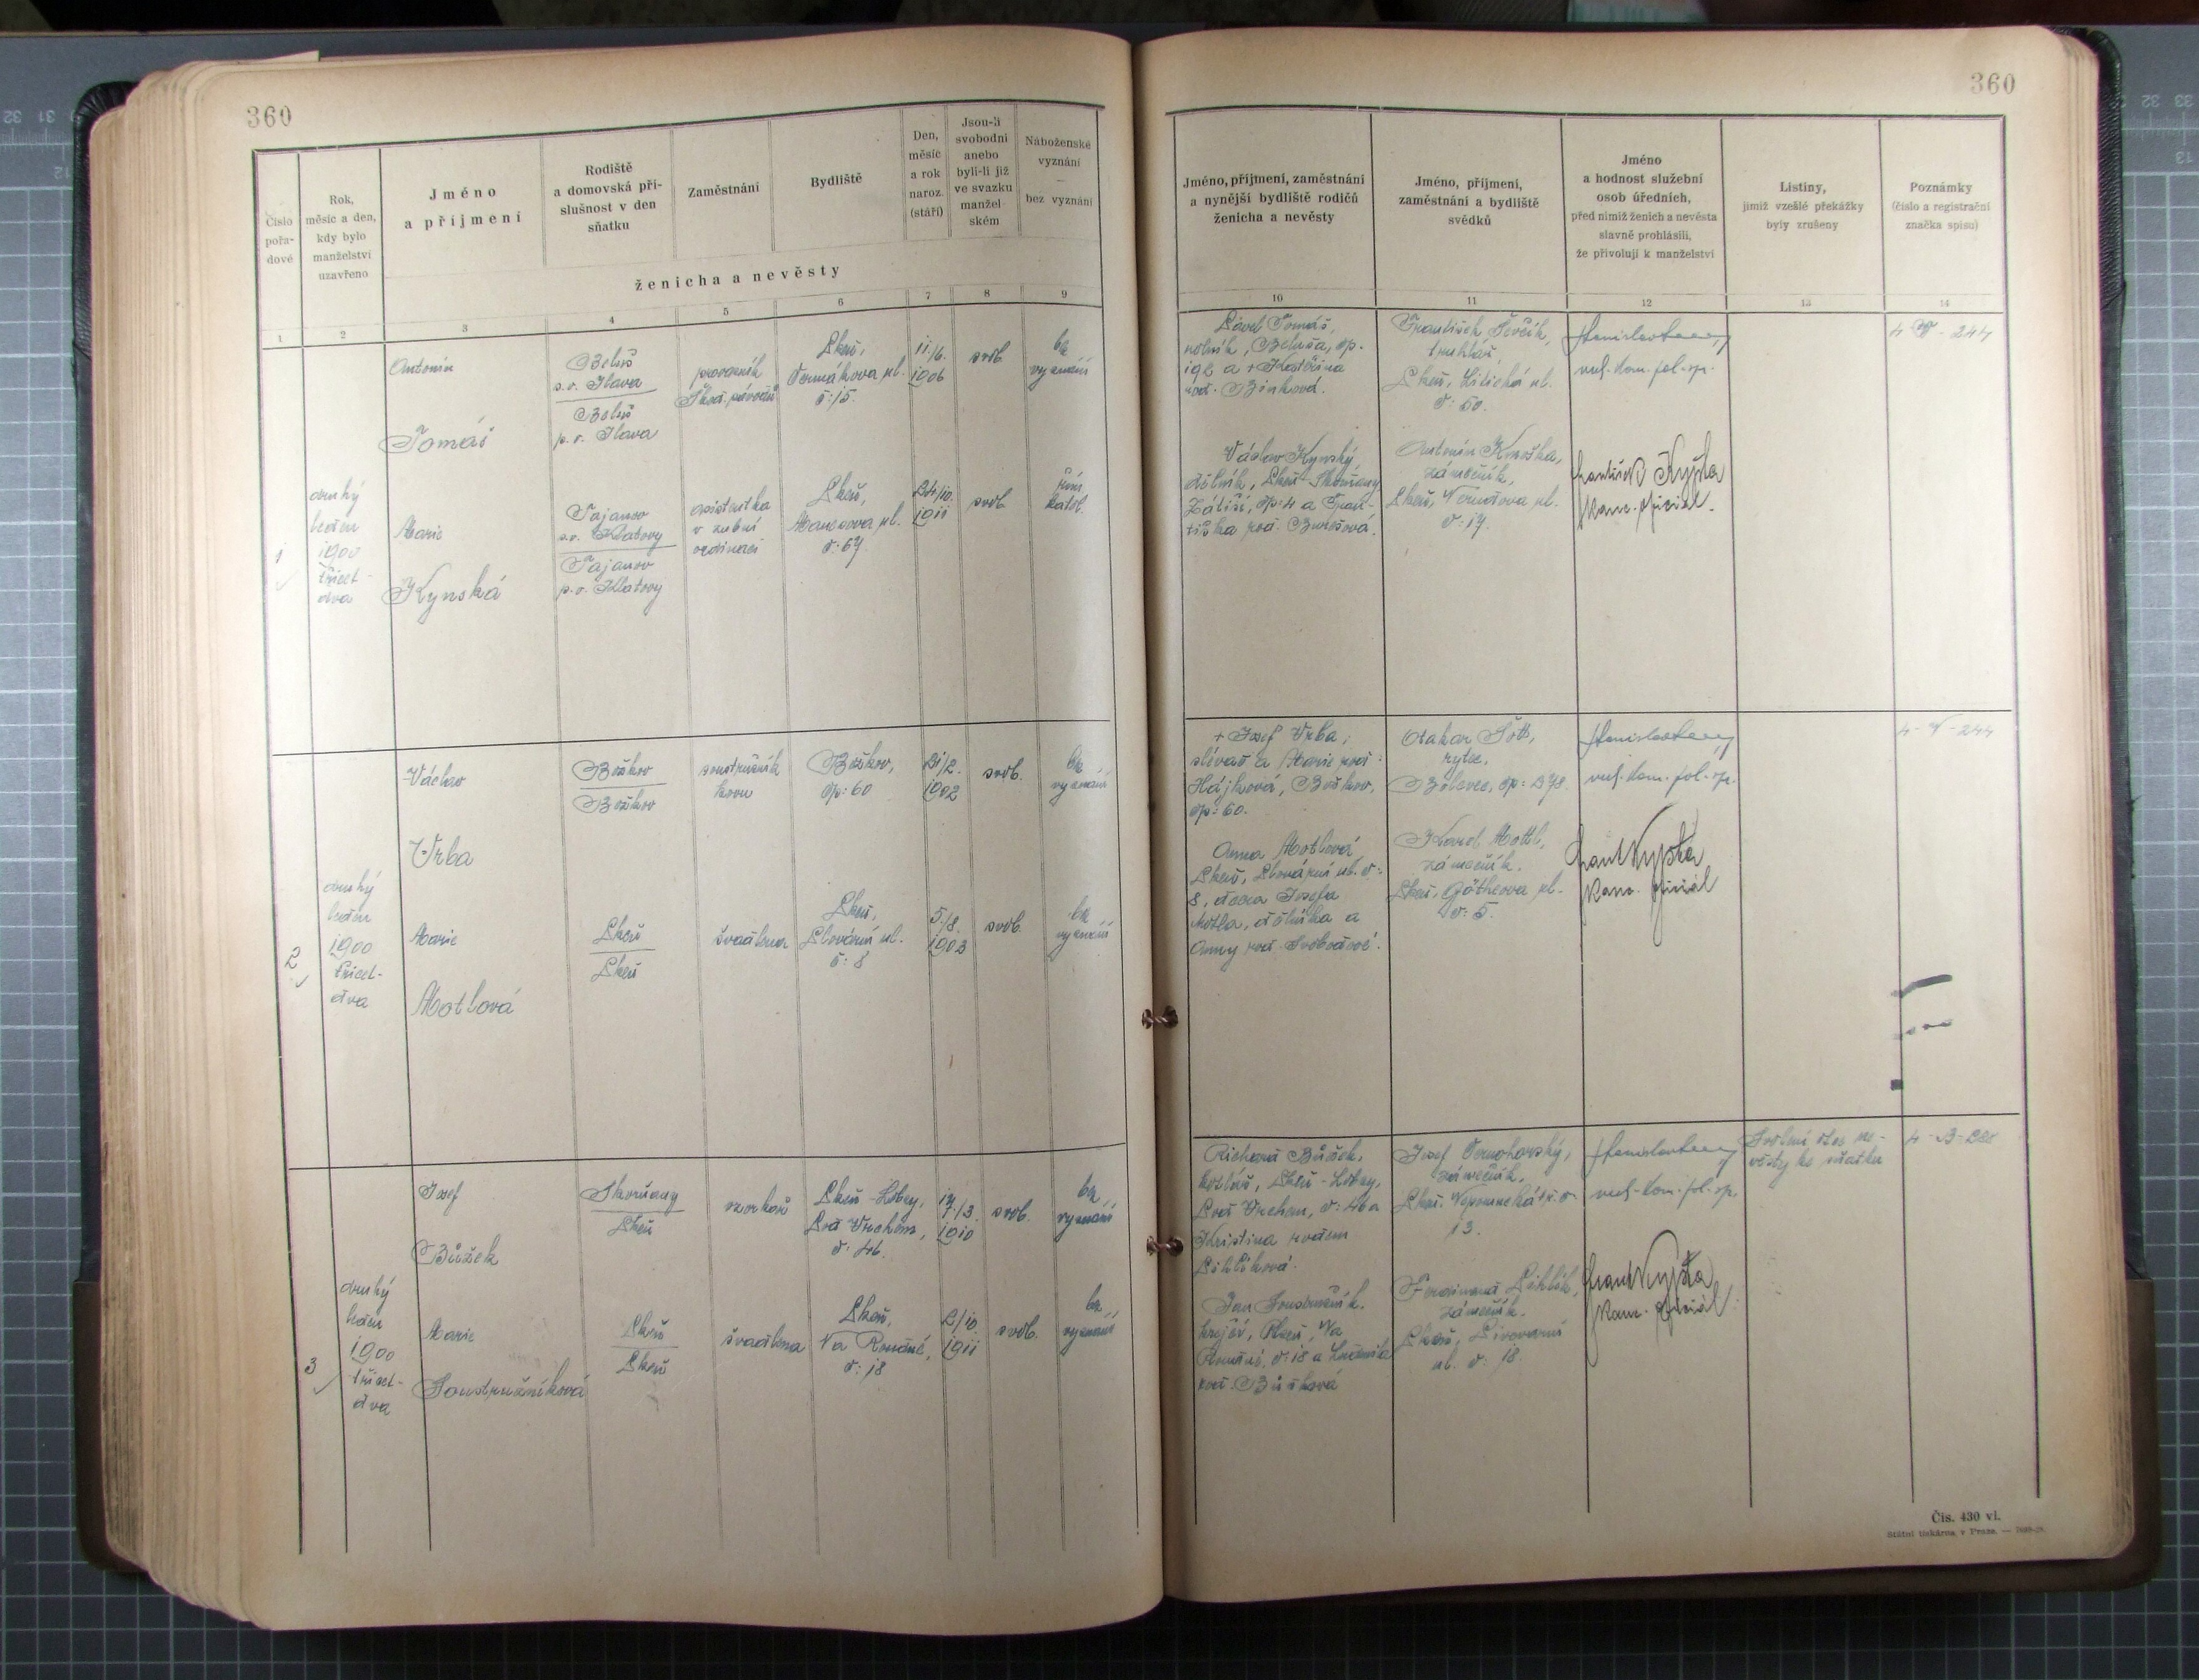 360
360
Číslo pořadové
Rok, měsíc a den, kdy bylo manželství uzavřeno
Jméno a příjmení
Rodiště a domovská příslušnost v den sňatku
Zaměstnání
Bydliště
Den, měsíc a rok naroz. (stáří)
Jsou-li svobodni anebo byli-li již ve svazku manželském
Náboženské vyznání — bez vyznání
ženicha a nevěsty
Jméno, příjmení, zaměstnání a nynější bydliště rodičů ženicha a nevěsty
Jméno, příjmení, zaměstnání a bydliště svědků
Jméno a hodnost služební osob úředních, před nimiž ženich a nevěsta slavně prohlásili, že přivolují k manželství
Listiny, jimiž vzešlé překážky byly zrušeny
Poznámky (číslo a registrační značka spisu)
1 2 3 4 5 6 7 8 9 10 11 12 13 14
1
druhý
leden
1900
třicet-
dva
Antonín
Tomáš
Beluš
s.o. Ilava
Beluš
p.o. Ilava
Plzeň,
č: 15.
11./6.
1906
svob.
bez
vyznání
Marie
Kynská
Tajanov
s.o. Klatovy
Tajanov
p.o. Klatovy
asistentka
v zubní
ordinaci
Plzeň,
Manesova ul.
č: 67.
24/10.
1911
svob.
řím.
katol.
Pavel Tomáš,
rolník, Beluša, čp.
192 a + Kateřina
roz. Binková.
Václav Kynský,
dělník, Plzeň-Skvrňany
Zátiší, čp: 4 a Fran-
tiška roz. Burešová.
František Ševčík,
truhlář,
Plzeň, Litická ul.
č: 50.
zámečník,
Plzeň, Nerudova ul.
č: 17.
František Vypšta
kanc. oficiál.
4-V-244
2
druhý
leden
1900
třicet-
dva
Václav
Vrba
Božkov
Božkov
soustružník
kovu
Božkov,
čp: 60
21/2.
1902
svob.
bez
vyznání
Marie
Motlová
Plzeň
Plzeň
švadlena
Plzeň,
Plovární ul.
č: 8
5./8.
1903
svob.
bez
vyznání
+ Josef Vrba,
slévač a Marie roz:
Hájková, Božkov,
čp: 60.
Anna Motlová,
Plzeň, Plovární ul. č:
8, dcera Josefa
Motla, dělníka a
Anny roz. Svobodové.
Otakar
rytec,
Bolevec, čp: 278.
Karel Mottl,
zámečník,
Plzeň, Götheova ul.
č: 5.
kanc. oficiál
4-V-244
3
druhý
leden
1900
třicet-
dva
Josef
Bůžek
Skvrňany
Plzeň
Plzeň-Lobzy,
Pod Vrchem,
č: 46.
1910
svob.
bez
vyznání
Marie
Soustružníková
Plzeň
Plzeň
švadlena
Plzeň,
Na Roudné,
č: 18
2/10
1911
svob.
bez
vyznání
Richard Bůžek,
kotlář, Plzeň-Lobzy,
Pod Vrchem, č: 46 a
Kristina rozem
Jan Soustružník,
krejčí, Plzeň, Na
Roudné, č: 18 a Ludmila
roz.
Josef Černohorský,
zámečník,
Plzeň, Nepomucká tř. č:
13.
Ferdinand
zámečník,
Plzeň, Pivovarní
ul. č: 18.
kanc. oficiál
Svolení otce ne-
věsty ke sňatku
Čís. 430 vl.
Státní tiskárna v Praze.